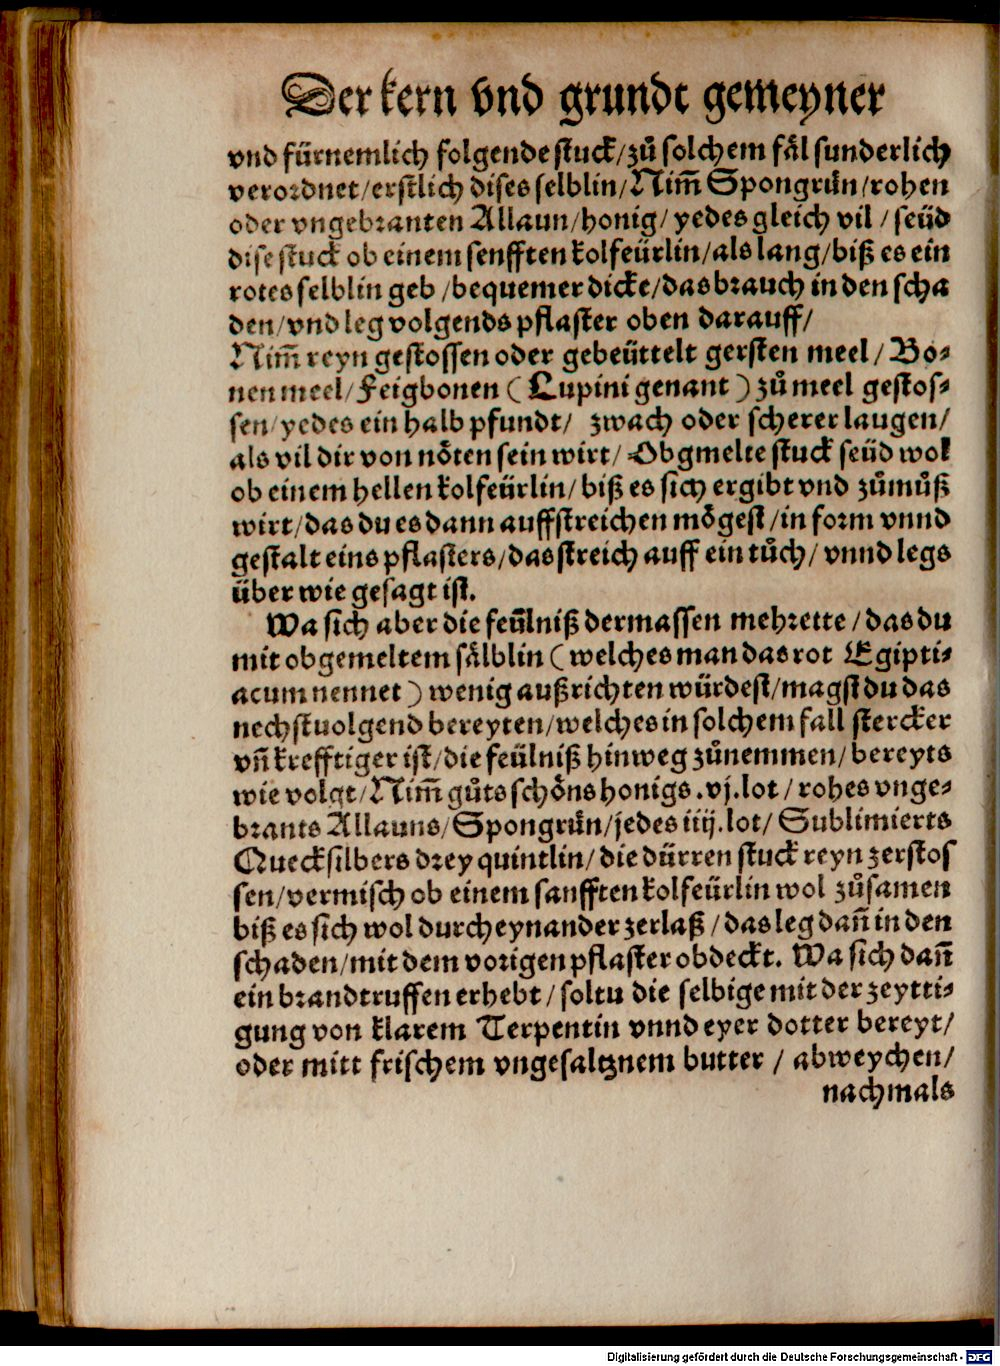 Der kern vnd grundt gemeyner
vnd fürnemlich folgende stuck/zů solchem fäl sunderlich
verordnet/erstlich dises selblin/Nim̃ Spongrün/rohen
oder vngebranten Allaun/honig/yedes gleich vil/seüd
dise stuck ob einem senfften kolfeürlin/als lang/biß es ein
rotes selblin geb/bequemer dicke/das brauch in den scha
den/vnd leg volgends pflaster oben darauff/
Nim̃ reyn gestossen oder gebeüttelt gersten meel/Bo⸗
nen meel/Feigbonen (Lupini genant) zů meel gestos⸗
sen/yedes ein halb pfundt/ zwach oder scherer laugen/
als vil dir von nöten sein wirt/Obgmelte stuck seüd wol
ob einem hellen kolfeürlin/biß es sich ergibt vnd zůmůß
wirt/das du es dann auffstreichen mögest/in form vnnd
gestalt eins pflasters/das streich auff ein tůch/vnnd legs
über wie gesagt ist.
Wa sich aber die feülniß dermassen mehrette/das du
mit obgemeltem sälblin (welches man das rot Egipti⸗
acum nennet) wenig außrichten würdest/magst du das
nechstuolgend bereyten/welches in solchem fall stercker
vñ krefftiger ist/die feülniß hinweg zůnemmen/bereyts
wie volgt/Nim̃ gůts schöns honigs .vj.lot/rohes vnge⸗
brants Allauns/Spongrün/jedes iiij.lot/Sublimierts
Quecksilbers drey quintlin/die dürren stuck reyn zerstos
sen/vermisch ob einem sanfften kolfeürlin wol zůsamen
biß es sich wol durcheynander zerlaß/das leg dañ in den
schaden/mit dem vorigen pflaster obdeckt. Wa sich dañ
ein brandtruffen erhebt/soltu die selbige mit der zeytti⸗
gung von klarem Terpentin vnnd eyer dotter bereyt/
oder mitt frischem vngesaltznem butter/abweychen/
nachmals
Digitalisierung gefördert durch die Deutsche Forschungsgemeinschaft - DFG